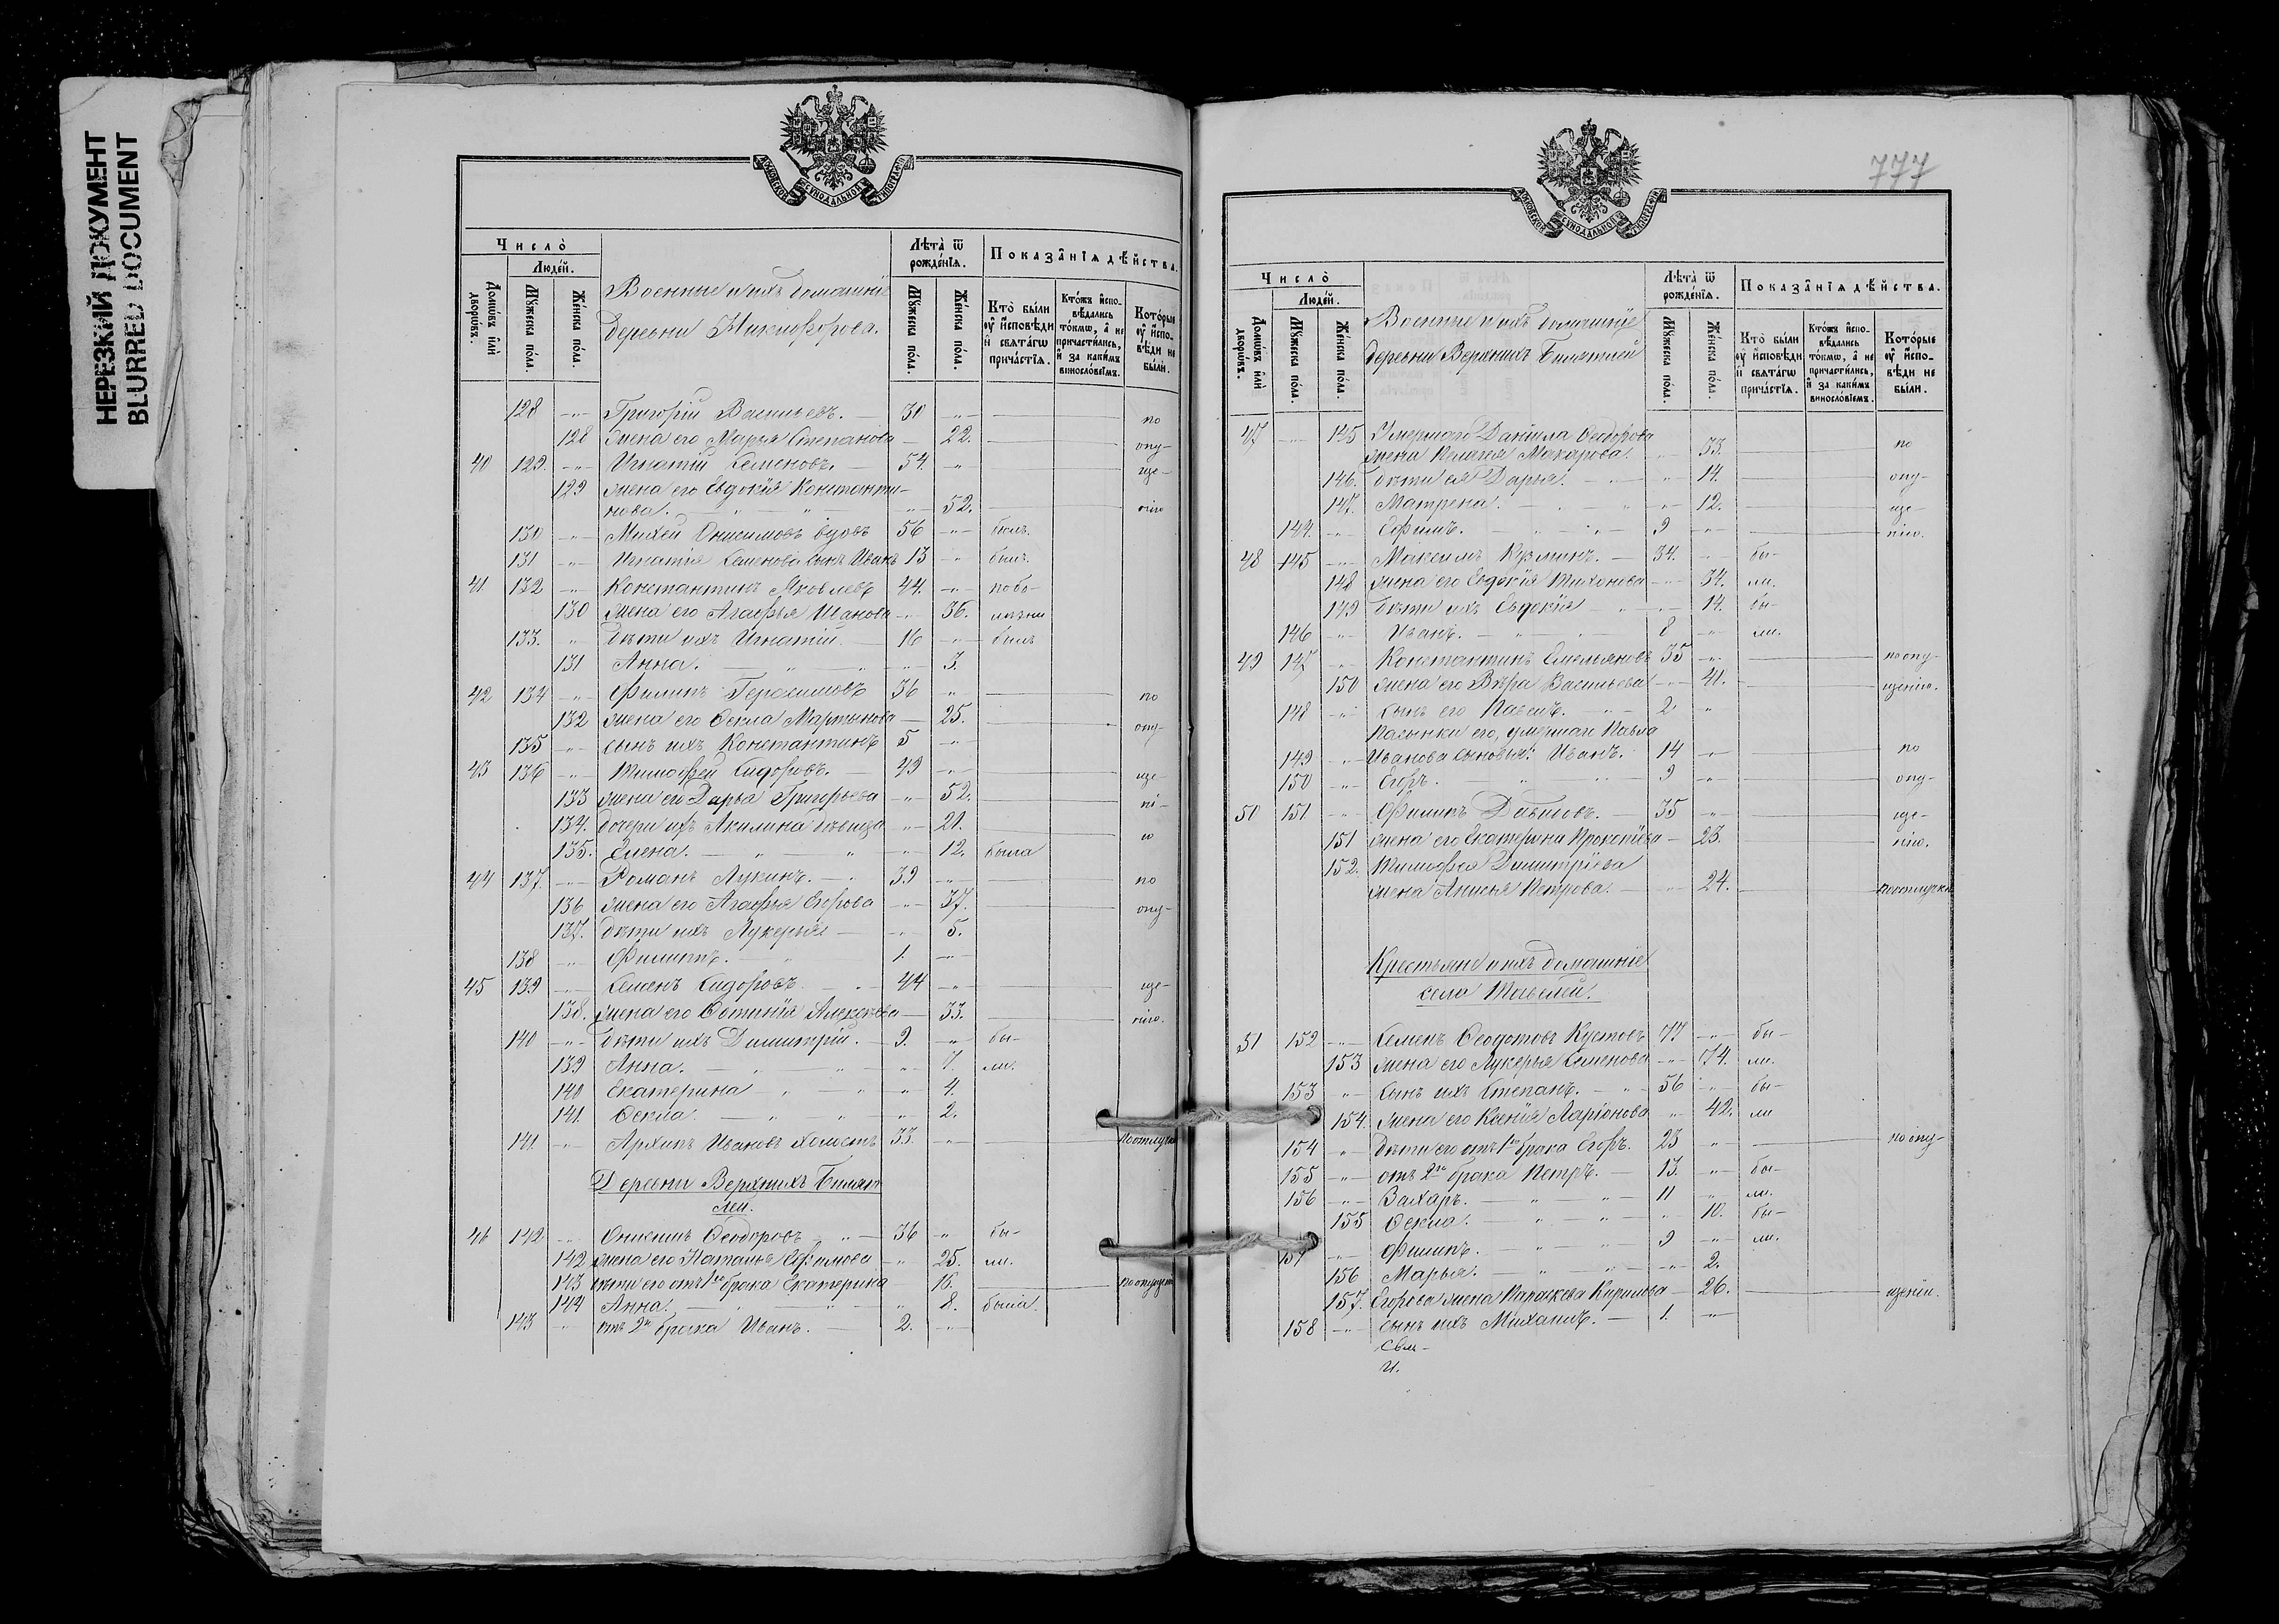 НЕРЕЗКИЙ ДОКУМЕНТ
BLURRED DOCUMENT
МОСКОВСКОЙ СѴНОДАЛЬНОЙ ТИПОГРАФІИ
Число̀
Людей.
Домѡвъ илѝ дворѡвъ.
Мꙋжеска пола.
Женска пола.
Военные и ихъ домашніе
деревни Никифорова.
Лѣта̀ ѿ рожденїѧ.
Мꙋжеска пола.
Женска пола.
Показанїѧ дѣйства.
Кто̀ были ᲂу҆ и҆сповѣди и҆ свѧтагѡ причастїѧ.
Ктожъ и҆сповѣдались токмѡ, а҆ не причастились, и҆ за какимъ винословїемъ.
Которые ᲂу҆ и҆сповѣди не были.
128 -"- Григорій Васильевъ. — 30 -"- по
128 жена его Марья Степанова — 22. опу-
40 129. -"- Игнатій Семеновъ. — 54. " ще-
129 жена его Евдокія Константи-
нова. — " — " — 52. нію
130 -"- Михей Онисимовъ вдовъ 56 -"- былъ.
131 -"- Игнатія Семенова сынъ Иванъ 13 -"- былъ.
41 132 -"- Константинъ Яковлевъ 44. -"- по бо-
130 жена его Агафья Иванова -"- 36. лѣзни
133. " дѣти ихъ Игнатій — 16 -"- былъ
131 Анна. — " — " -"- 3.
42 134 -"- Филипъ Герасимовъ 36 " по
132 жена его Ѳекла Мартынова — 25. опу-
135 -"- сынъ ихъ Константинъ 5 -"-
43 136 -"- Тимофей Сидоровъ. — 49 -"- ще-
133 жена его Дарья Григорьева -"- 52. ні-
134. дочери ихъ Акилина дѣвица -"- 21. ю
135. Елена. — " — " -"- 12. была
44 137. -"- Романъ Лукинъ. — " 39 -"- по
136 жена его Агафья Егорова -"- 37. опу-
137. дѣти ихъ Лукерья — -"- 5.
138 -"- Филиппъ. — " 1. -"-
45 139 -"- Семенъ Сидоровъ. — " 44 -"- ще-
138. жена его Фотинія Алексѣева — 33. нію.
140 -"- дѣти ихъ Димитрій. — 9. -"- бы-
139 Анна. — " — " -"- 7. ли.
140 Екатерина — " " 4.
141. Ѳекла. — " — " -"- 2.
141. -"- Архипъ Ивановъ холостъ 33. -"- по отлуч
Деревни Верхнихъ Билят-
лей.
46 142 -"- Онисимъ Ѳеодоровъ " — 36 " бы-
142 жена его Наталья Ефимова -"- 25. ли.
143 дѣти его отъ 1го брака Екатерина 16. по опущен
144 Анна. — " — " " 8. была.
143 -"- отъ 2го брака Иванъ. — 2. -"-
777
МОСКОВСКОЙ СѴНОДАЛЬНОЙ ТИПОГРАФІИ
Число̀
Людей.
Домѡвъ илѝ дворѡвъ.
Мꙋжеска пола.
Женска пола.
Военные и ихъ домашніе
деревни Верхнихъ Билятлей
Лѣта̀ ѿ рожденїѧ.
Мꙋжеска пола.
Женска пола.
Показанїѧ дѣйства.
Кто̀ были ᲂу҆ и҆сповѣди и҆ свѧтагѡ причастїѧ.
Ктожъ и҆сповѣдались токмѡ, а҆ не причастились, и҆ за какимъ винословїемъ.
Которые ᲂу҆ и҆сповѣди не были.
47 -"- 145 Умершаго Даніила Ѳеодорова
жена Пелагея Макарова. -"- 53. по
146. дѣти ея Дарья. — " 14. опу-
147. Матрена. — " " 12. ще-
144. -"- Ефимъ. — " 9 -"- нію.
48 145 -"- Максимъ Кузминъ. — 34. -"- бы-
148 жена его Евдокія Тихонова -"- 34. ли.
149 дѣти ихъ Евдокія — " -"- 14. бы-
146 -"- Иванъ. — " — " 8 -"- ли.
49 147 -"- Константинъ Емельяновъ 35 -"- по опу-
150 жена его Вѣра Васильева -"- 41. щенію.
148 -"- сынъ его Павелъ. — " 2. "
Пасынки его, умершаго Павла
149 -"- Иванова сыновья: Иванъ. 14 -"- по
150 -"- Егоръ. " " 9 -"- опу-
50 151 -"- Филипъ Давыдовъ. — 35 -"- ще-
151 жена его Екатерина Прокопіева — 23. нію.
152. Тимофея Димитріева
жена Анисья Петрова. — -"- 24. по отлучкѣ
Крестьяне и ихъ домашніе
села
51 152 -"- Семенъ Ѳеодотовъ Кустовъ 77. -"- бы-
153 жена его Лукерья Семенова -"- 74. ли.
153 -"- сынъ ихъ Степанъ. — " 56 -"- бы-
154. жена его Ксенія Ларіонова " 42. ли
154 " дѣти его отъ 1го брака Егоръ. 23 " по опу-
155 -"- отъ 2го брака Петръ. — 13. -"- бы-
156 -"- Захаръ. — " — " 11 " ли.
155 Ѳекла. — " — " " 10. бы-
157 -"- Филипъ. — " — " 9 -"- ли.
156 Марья. — " — " -"- 2.
157. Егорова жена Параскева Кирилова — 26. щенію.
158 -"- сынъ ихъ Михаилъ. — 1. -"-